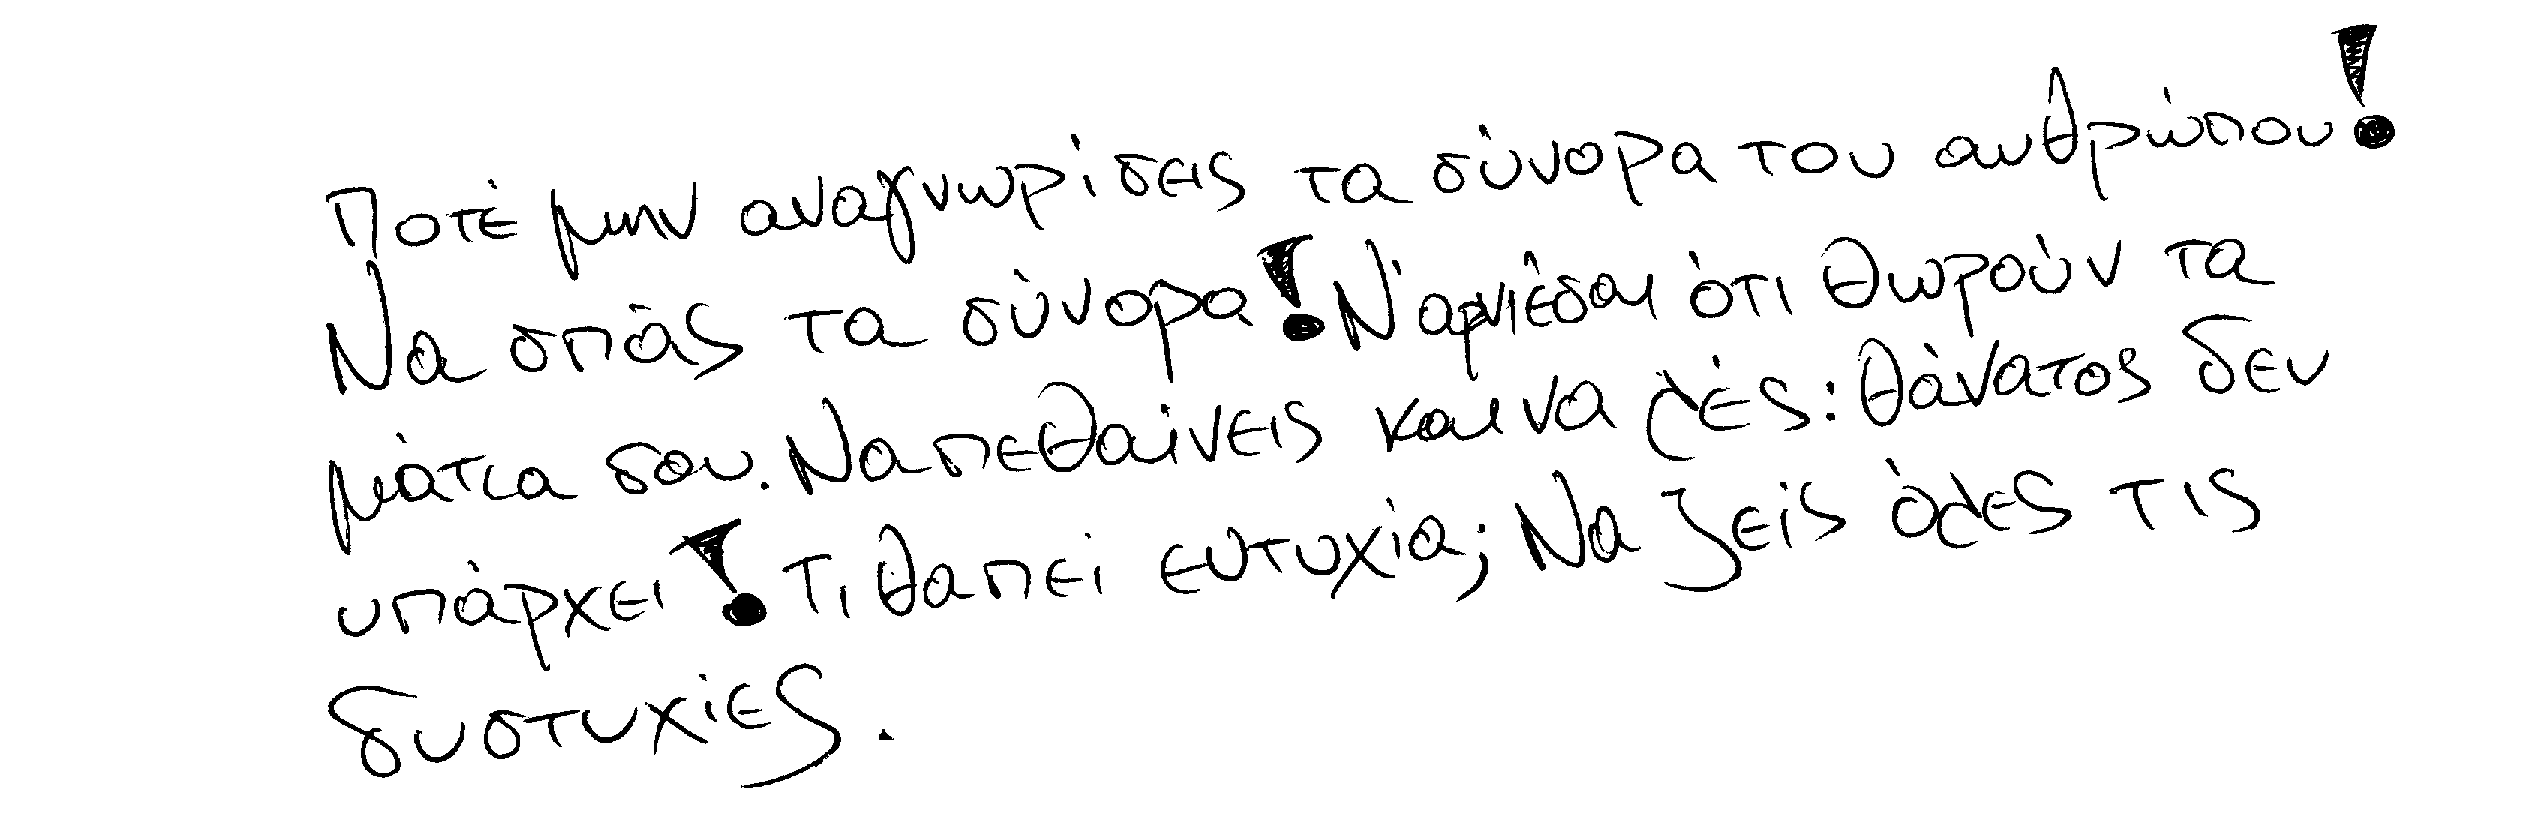 Ποτέ μην αναγνωρίσεις τα σύνορα του ανθρώπου!
Να σπάς τα σύνορα! Ν'αρνιέσαι ότι θωρούν τα
μάτια σου. Να πεθαίνεις και να λές: θάνατος δεν
υπάρχει! Τι θα πει ευτυχία; Να ζείς όλες τις
δυστυχίες.